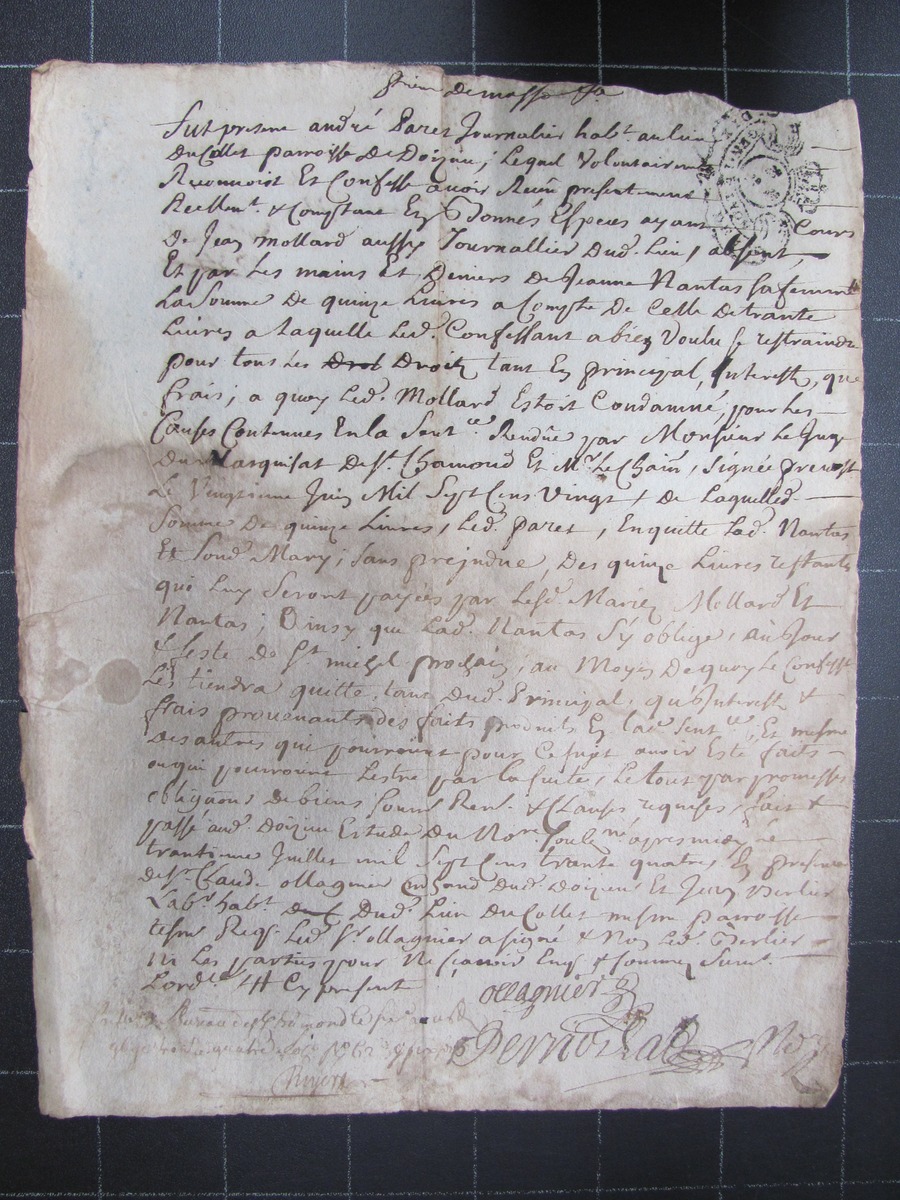 Fut present andré Paret Journalier habt. au lieu
Du Collet parroisse de Doizieu, Lequel Volontairem
Reconnoist Et Confesse avoir Receu presentement
Reellemt. & Comptant En Bonnes Especes ayant Cours
De Jean Mollard aussy Journallier Dud. Lieu, absent,
Et par Les mains Et Deniers de Jeanne Nantas sa femme
La Somme De quinze Livres a Compte De Celle de trante
Livres a Laquelle Led. Confessant a bien Voulu se restraindre
pour tous Les Droits tant En principal, Interests, que
frais, a quoy Led. Mollard Estoit Condamné, pour Les
Causes Contenues En la Sentce. Rendue par Monsieur Le Juge
Du Marquisat de St. Chamond Et Mr. Le Chain, signée prevost
Le Vingtieme Juin Mil Sept Cens Vingt, De Laquelled.
Somme De quinze Livres, Led. paret, En quitte Lad. Nantas
Et Sond. Mary; Sans prejudice, Des quinze Livres restants
qui Luy Seront payées par Lesd. Mariez Mollard Et
Nantas; Ainsy que Lad. Nantas S'y oblige, au Jour
& feste de St. michel prochain, au Moyen De quoy Le Confesst
Les tiendra quitte, tant Dud. Principal, qu'Interests &
frais provenants des faits produits En lad. Sentce. Et mesme
Des autres qui pourroient pour Ce sujet avoir Esté faits
ou qui pourroient L'estre par la suite, Le tout par promesses
obligaons de biens Soums Ren. & Clauses requises, fait &
passé aud. Doizieu Estude Du Nore. Soube. apres midy Le
trantieme Juillet mil Sept Cens trante quatre, En presence
de Sr. Claude ollagnier Dud. Doizieu Et Jean Berlier
Labr. habt. Dud. Lieu Du Collet mesme parroisse
tesm. Req. Led. Sr. ollagnier a signé & Non Led. Berlier
ni Les parties pour Ne Sçavoir Enqs & sommez Suivt.
Lordce. Cy present
ollagnier